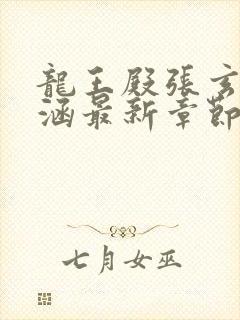 龍王殿張玄
涵最新章節
七月女巫